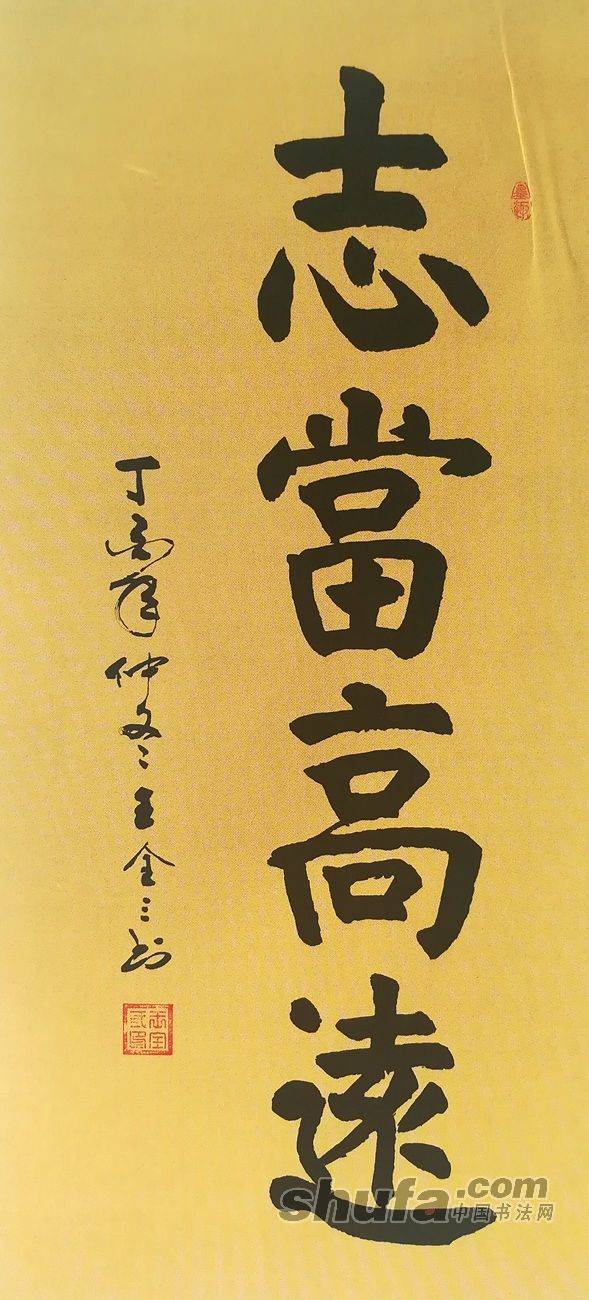 志當高遠
丁酉年仲冬王金三書
shufa.com
中国书法网